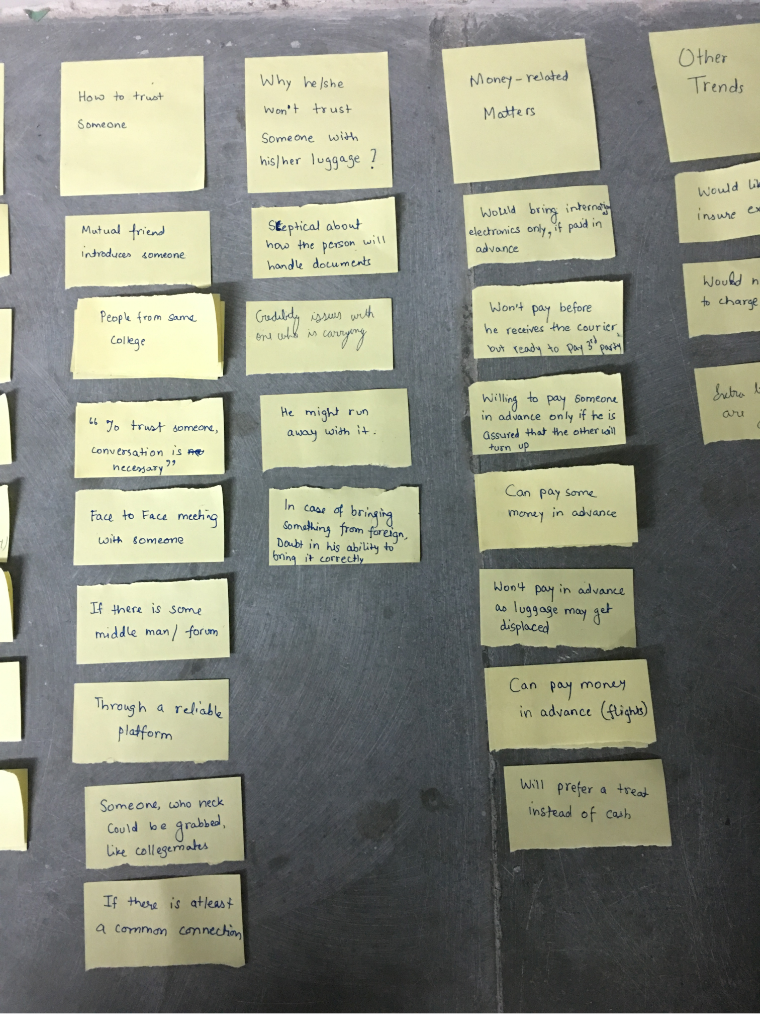 How to trust
Someone
Mutual friend
introduces someone
People from same
college
"To trust someone,
conversation is
necessary"
Face to Face meeting
with someone
If there is some
middle man/ forum
Through a reliable
platform
Someone, who neck
Could be grabbed,
like collegemates
If there is atleast
a common connection
Why he/she
won't trust
Someone with
his/her luggage ?
Skeptical about
how the person will
handle documents
issues with
one who is carrying
He might run
away with it.
In case of bringing
something from foreign,
Doubt in his ability to
bring it correctly
Money-related
Matters
Would bring
electronics only, if paid in
advance
Won't pay before
he receives the courier,
but ready to pay 3rd party
Willing to pay someone
in advance only if he is
assured that the other will
turn up
Can pay some
money in advance
Won't pay in advance
as luggage may get
displaced
Can pay money
in advance (flights)
Will prefer a treat
instead of cash
Other
Trends
Would
insure
Would
to charge
are